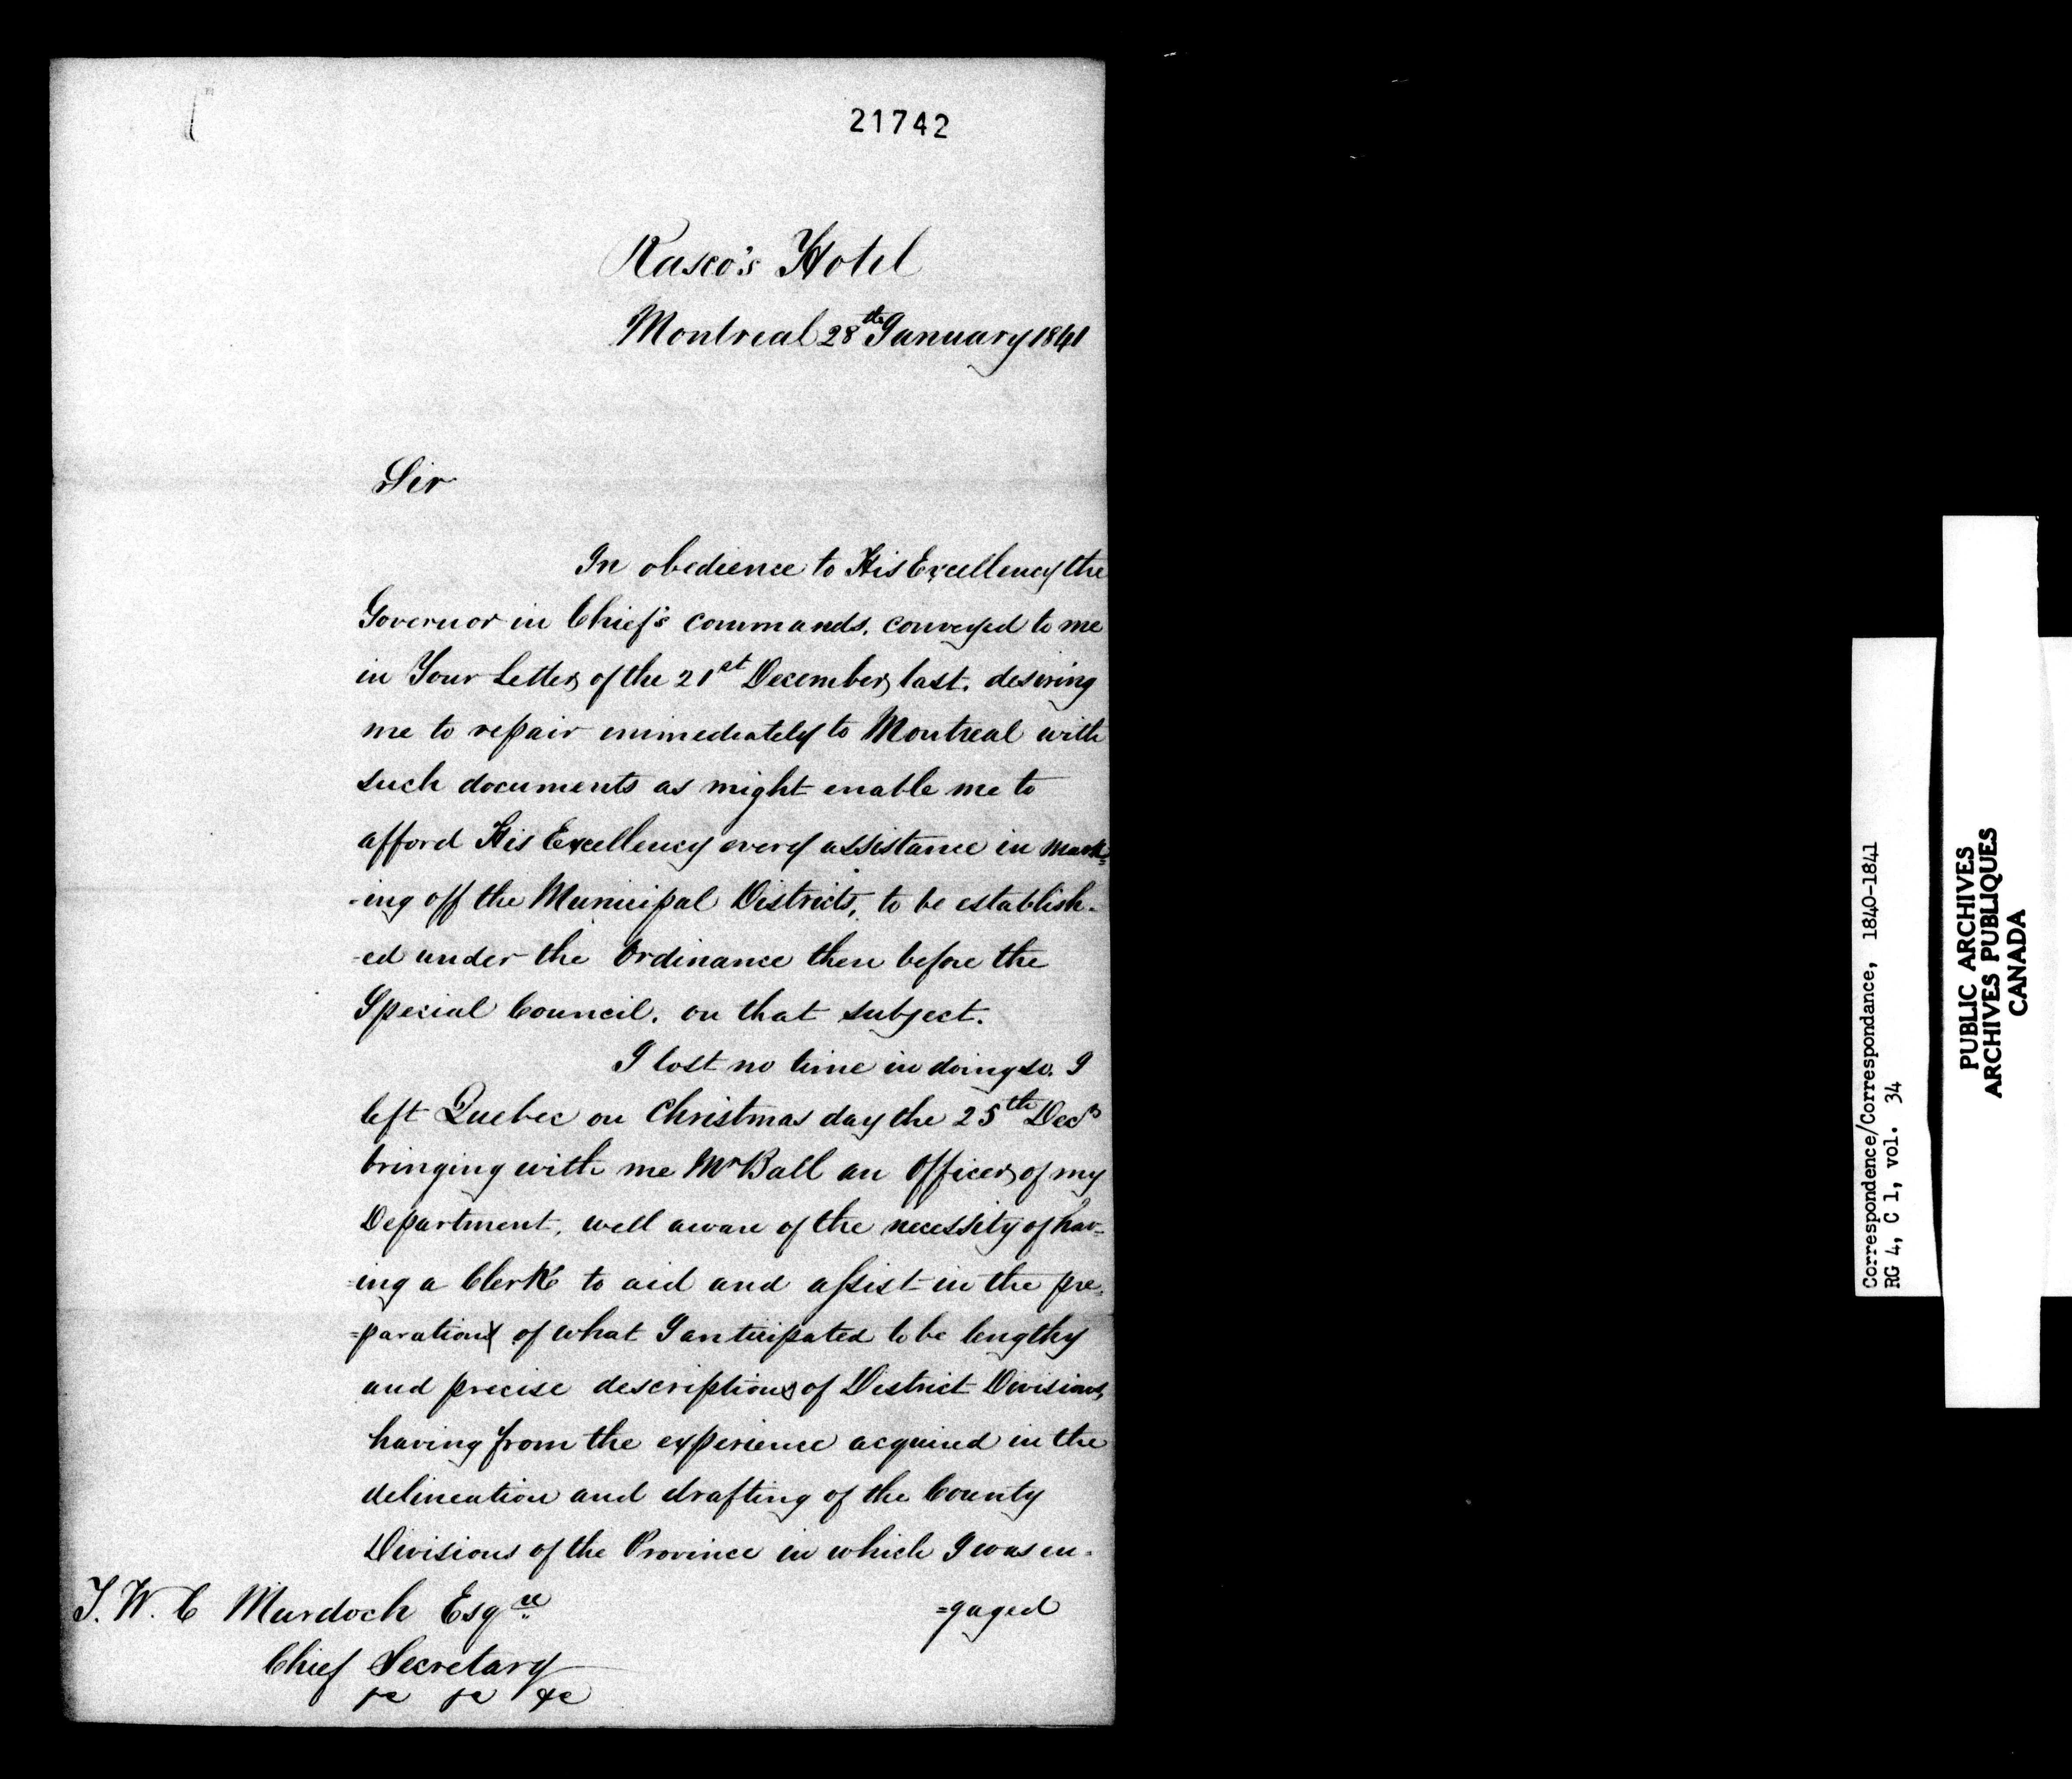 21742
Rasco's Hotel
Montreal 28th January 1841
Sir
In obedience to His Excellency the
Governor in Chief's commands, conveyed to me
in Your Letter of the 21st December last, desiring
me to repair immediately to Montreal with
such documents as might enable me to
afford His Excellency every assistance in mark=
-ing off the Municipal Districts, to be establish-
-ed under the Ordinance then before the
Special Council, on that subject.
I lost no time in doing so. I
left Quebec on Christmas day the 25th Decr
bringing with me Mr Ball an Officer of my
Department, well aware of the necessity of hav=
-ing a Clerk to aid and assist in the pre=
=paration of what I anticipated to be lengthy
and precise descriptions of District Divisions,
having from the experience acquired in the
delineation and drafting of the County
Divisions of the Province in which I was en-
=gaged
T. W. C Murdoch Esqre
Chief Secretary
&c &c &c
Correspondence/Correspondance, 1840-1841
RG 4, C 1, vol. 34
PUBLIC ARCHIVES
ARCHIVES PUBLIQUES
CANADA